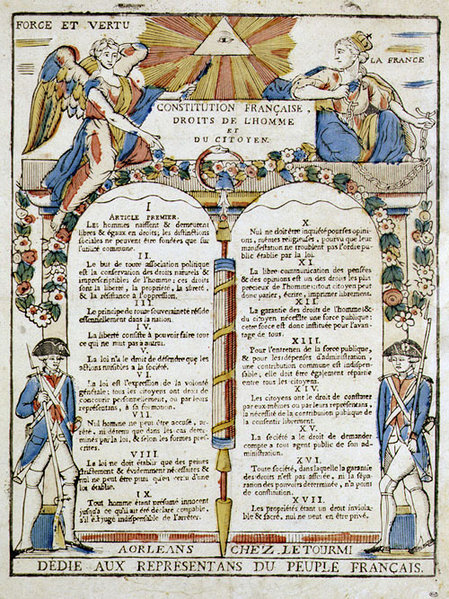 FORCE ET VERTU
LA FRANCE
CONSTITUTION FRANÇAISE,
DROITS DE L'HOMME
ET
DU CITOYEN.
I
ARTICLE PREMIER.
Les hommes naissent & demeurent
libres & égaux en droits; les distinctions
sociales ne peuvent être fondées que sur
l'utilité commune.
II.
Le but de toute association politique
est la conservation des droits naturels &
imprescriptibles de l'homme; ces droits
sont la liberté la propriété, la sûreté,
& la résistance à l'oppression.
III.
Le principe de toute souveraineté réside
essentiellement dans la nation.
IV.
La liberté consiste à pouvoir faire tout
ce qui ne nuit pas à autrui.
V.
La loi n'a le droit de défendre que les
actions nuisibles à la société.
VI.
La loi est l'expression de la volonté
générale; tous les citoyens ont droit de
concourir personnellement, ou par leurs
représentans, à sa formation.
VII.
Nul homme ne peut être accusé, arrêté,
ni détenu que dans les cas déterminés
par la loi, & selon les formes prescrites.
VIII.
La loi ne doit établir que des peines
strictement & évidemment nécessaires &
nul ne peut être puni qu'en vertu d'une
loi établie.
IX.
Tout homme étant présumé innocent
jusqu'à ce qu'il ait été déclaré coupable,
s'il est jugé indispensable de l'arrêter.
X.
Nul ne doit être inquiété pour ses opinions,
mêmes religieuses, pourvu que leur
manifestation ne troublent pas l'ordre public
établie par la loi.
XI.
La libre communication des pensées
& des opinions est un des droits les plus
précieux de l'homme: tout citoyen peut
donc parler, écrire, imprimer librement.
XII.
La garantie des droits de l'homme &
du citoyen nécessite une force publique;
cette force est donc instituée pour l'avantage
de tous.
XIII.
Pour l'entretien de la force publique,
& pour les dépenses d'administration,
une contribution commune est indispensable,
elle doit être également répartie
entre tous les citoyens.
XIV.
Les citoyens ont le droit de constater
par eux mêmes ou par leurs représentans,
la nécessité de la contribution publique de
la consentir librement.
XV.
La société a le droit de demander
compte à tout agent public de son
administration.
XVI.
Toute société, dans laquelle la garantie
des droits n'est pas assurée, ni la séparation
des pouvoirs déterminée, n'a point
de constitution.
XVII.
Les propriétés étant un droit inviolable
& sacré, nul ne peut en être privé.
A ORLEANS CHEZ LETOURMI
DÉDIE AUX REPRÉSENTANS DU PEUPLE FRANÇAIS.